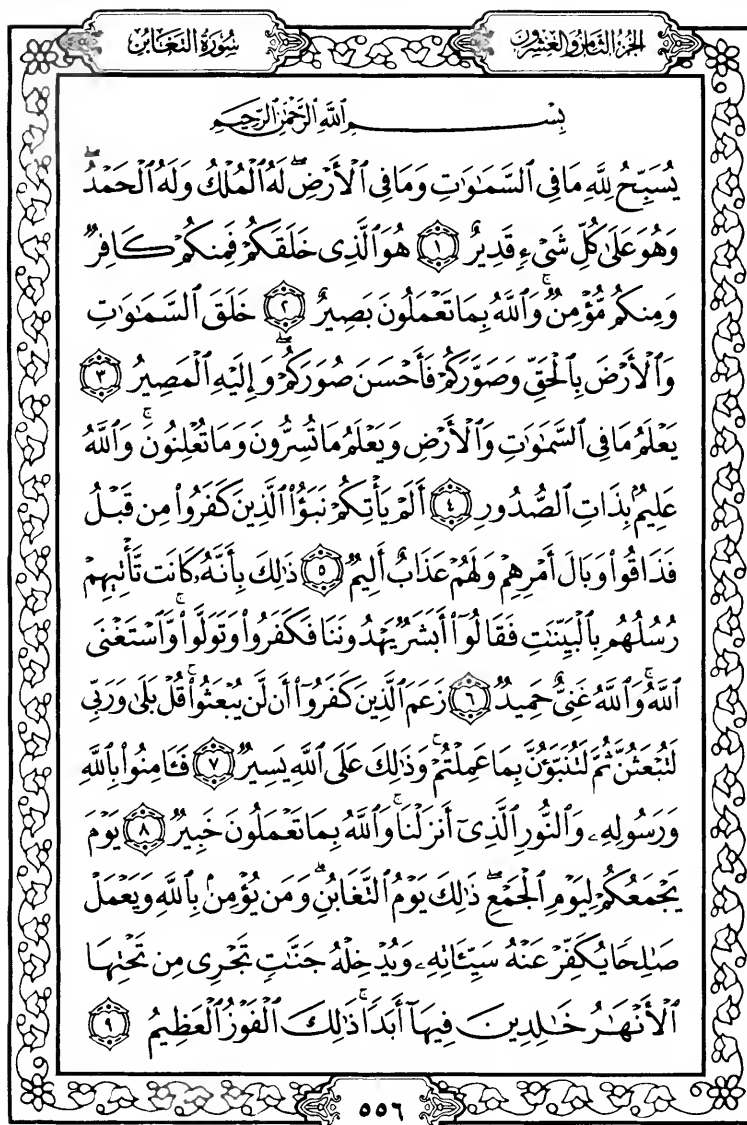 الجزء الثامن والعشرون
سورة التغابن
بِسْمِ ٱللَّهِ ٱلرَّحْمَٰنِ ٱلرَّحِيمِ
يُسَبِّحُ لِلَّهِ مَا فِي ٱلسَّمَٰوَٰتِ وَمَا فِي ٱلْأَرْضِۖ لَهُ ٱلْمُلْكُ وَلَهُ ٱلْحَمْدُۖ
وَهُوَ عَلَىٰ كُلِّ شَيْءٍ قَدِيرٌ ١ هُوَ ٱلَّذِي خَلَقَكُمْ فَمِنكُمْ كَافِرٌ
وَمِنكُم مُّؤْمِنٌۚ وَٱللَّهُ بِمَا تَعْمَلُونَ بَصِيرٌ ٢ خَلَقَ ٱلسَّمَٰوَٰتِ
وَٱلْأَرْضَ بِٱلْحَقِّ وَصَوَّرَكُمْ فَأَحْسَنَ صُوَرَكُمْۖ وَإِلَيْهِ ٱلْمَصِيرُ ٣
يَعْلَمُ مَا فِي ٱلسَّمَٰوَٰتِ وَٱلْأَرْضِ وَيَعْلَمُ مَا تُسِرُّونَ وَمَا تُعْلِنُونَۚ وَٱللَّهُ
عَلِيمٌۢ بِذَاتِ ٱلصُّدُورِ ٤ أَلَمْ يَأْتِكُمْ نَبَؤُاْ ٱلَّذِينَ كَفَرُواْ مِن قَبْلُ
فَذَاقُواْ وَبَالَ أَمْرِهِمْ وَلَهُمْ عَذَابٌ أَلِيمٌ ٥ ذَٰلِكَ بِأَنَّهُۥ كَانَت تَّأْتِيهِمْ
رُسُلُهُم بِٱلْبَيِّنَٰتِ فَقَالُوٓاْ أَبَشَرٌ يَهْدُونَنَا فَكَفَرُواْ وَتَوَلَّواْۚ وَّٱسْتَغْنَى
ٱللَّهُۚ وَٱللَّهُ غَنِيٌّ حَمِيدٌ ٦ زَعَمَ ٱلَّذِينَ كَفَرُوٓاْ أَن لَّن يُبْعَثُواْۚ قُلْ بَلَىٰ وَرَبِّي
لَتُبْعَثُنَّ ثُمَّ لَتُنَبَّؤُنَّ بِمَا عَمِلْتُمْۚ وَذَٰلِكَ عَلَى ٱللَّهِ يَسِيرٌ ٧ فَـَٔامِنُواْ بِٱللَّهِ
وَرَسُولِهِۦ وَٱلنُّورِ ٱلَّذِيٓ أَنزَلْنَاۚ وَٱللَّهُ بِمَا تَعْمَلُونَ خَبِيرٌ ٨ يَوْمَ
يَجْمَعُكُمْ لِيَوْمِ ٱلْجَمْعِۖ ذَٰلِكَ يَوْمُ ٱلتَّغَابُنِۗ وَمَن يُؤْمِنۢ بِٱللَّهِ وَيَعْمَلْ
صَٰلِحًا يُكَفِّرْ عَنْهُ سَيِّـَٔاتِهِۦ وَيُدْخِلْهُ جَنَّٰتٍ تَجْرِي مِن تَحْتِهَا
ٱلْأَنْهَٰرُ خَٰلِدِينَ فِيهَآ أَبَدًاۚ ذَٰلِكَ ٱلْفَوْزُ ٱلْعَظِيمُ ٩
٥٥٦